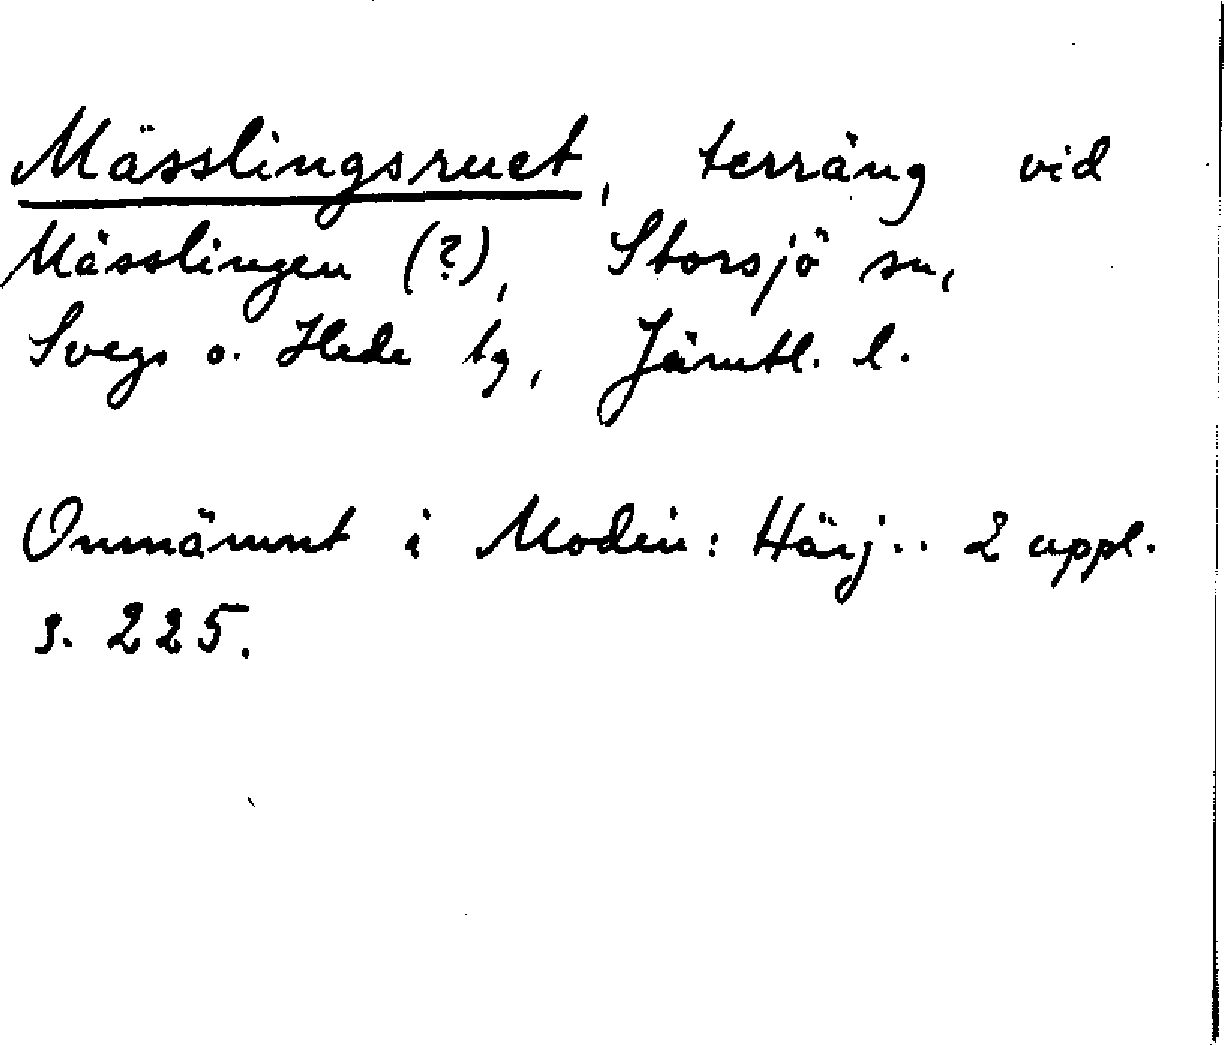 Mässlingsruet, terräng vid
Mässlingen (?), Storsjö sn,
Svegs o. Hede tg, Jämtl. l.
Omnämnt i Modin: Härj.. 2 uppl.
s. 225.